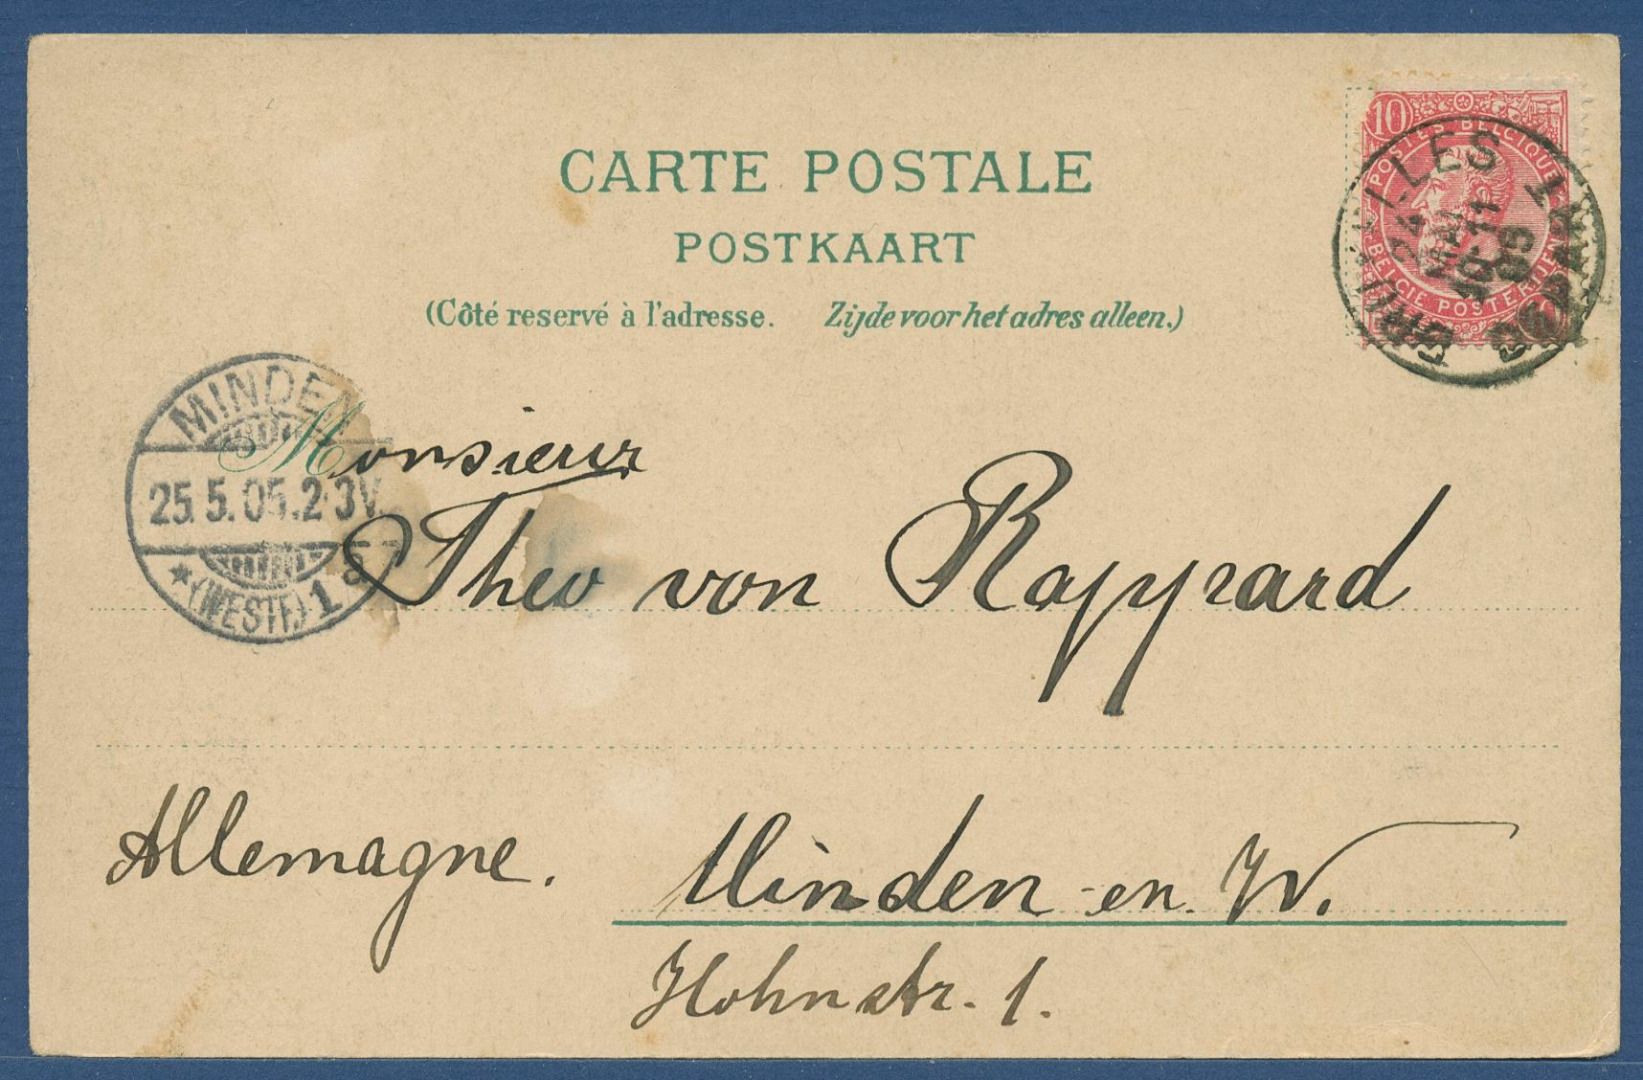 CARTE POSTALE
POSTKAART
(Côté reservé à l'adresse. Zijde voor het adres alleen.)
10
POSTES BELGIQUE
BELGIE POSTERIJEN
BRUXELLES DEPART
24
MAI
10-11
05
MINDEN
25.5.05.2-3V.
*(WESTF.) 1 a
Monsieur
Theo von Rappard
Allemagne.
Minden en W.
Hohnstr. 1.